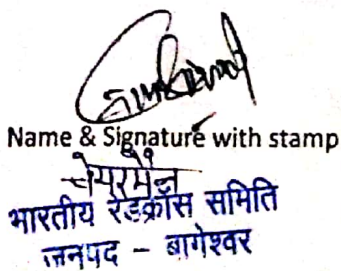 Name & Signature with stamp
चेयरमैन
भारतीय रेडक्रॉस समिति
जनपद - बागेश्वर